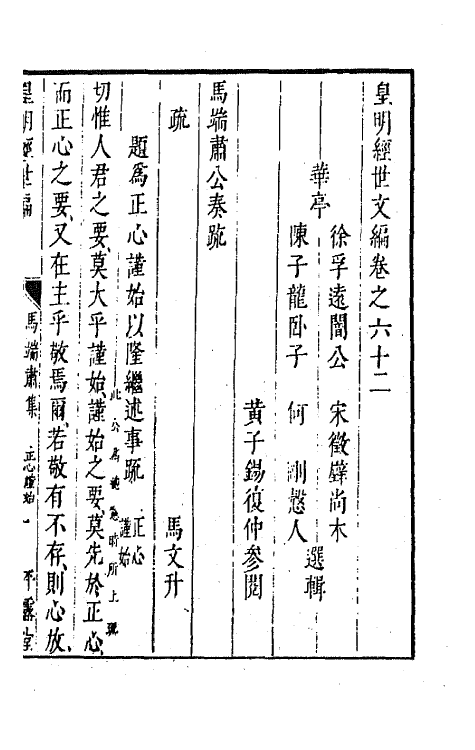 皇明經世文編卷之六十二
華亭
徐孚遠闇公 宋徵璧尚木
陳子龍臥子 何 剛慤人
選輯
黃子錫復仲參閱
馬端肅公奏疏
疏
馬文升
題為正心謹始以隆繼述事疏 正心謹始
此公為 時所上疏
切惟人君之要、莫大乎謹始、謹始之要、莫先於正心、
而正心之要、又在主乎敬焉爾、若敬有不存、則心放、
皇明經世編
馬端肅集 正心謹始 一 平露堂